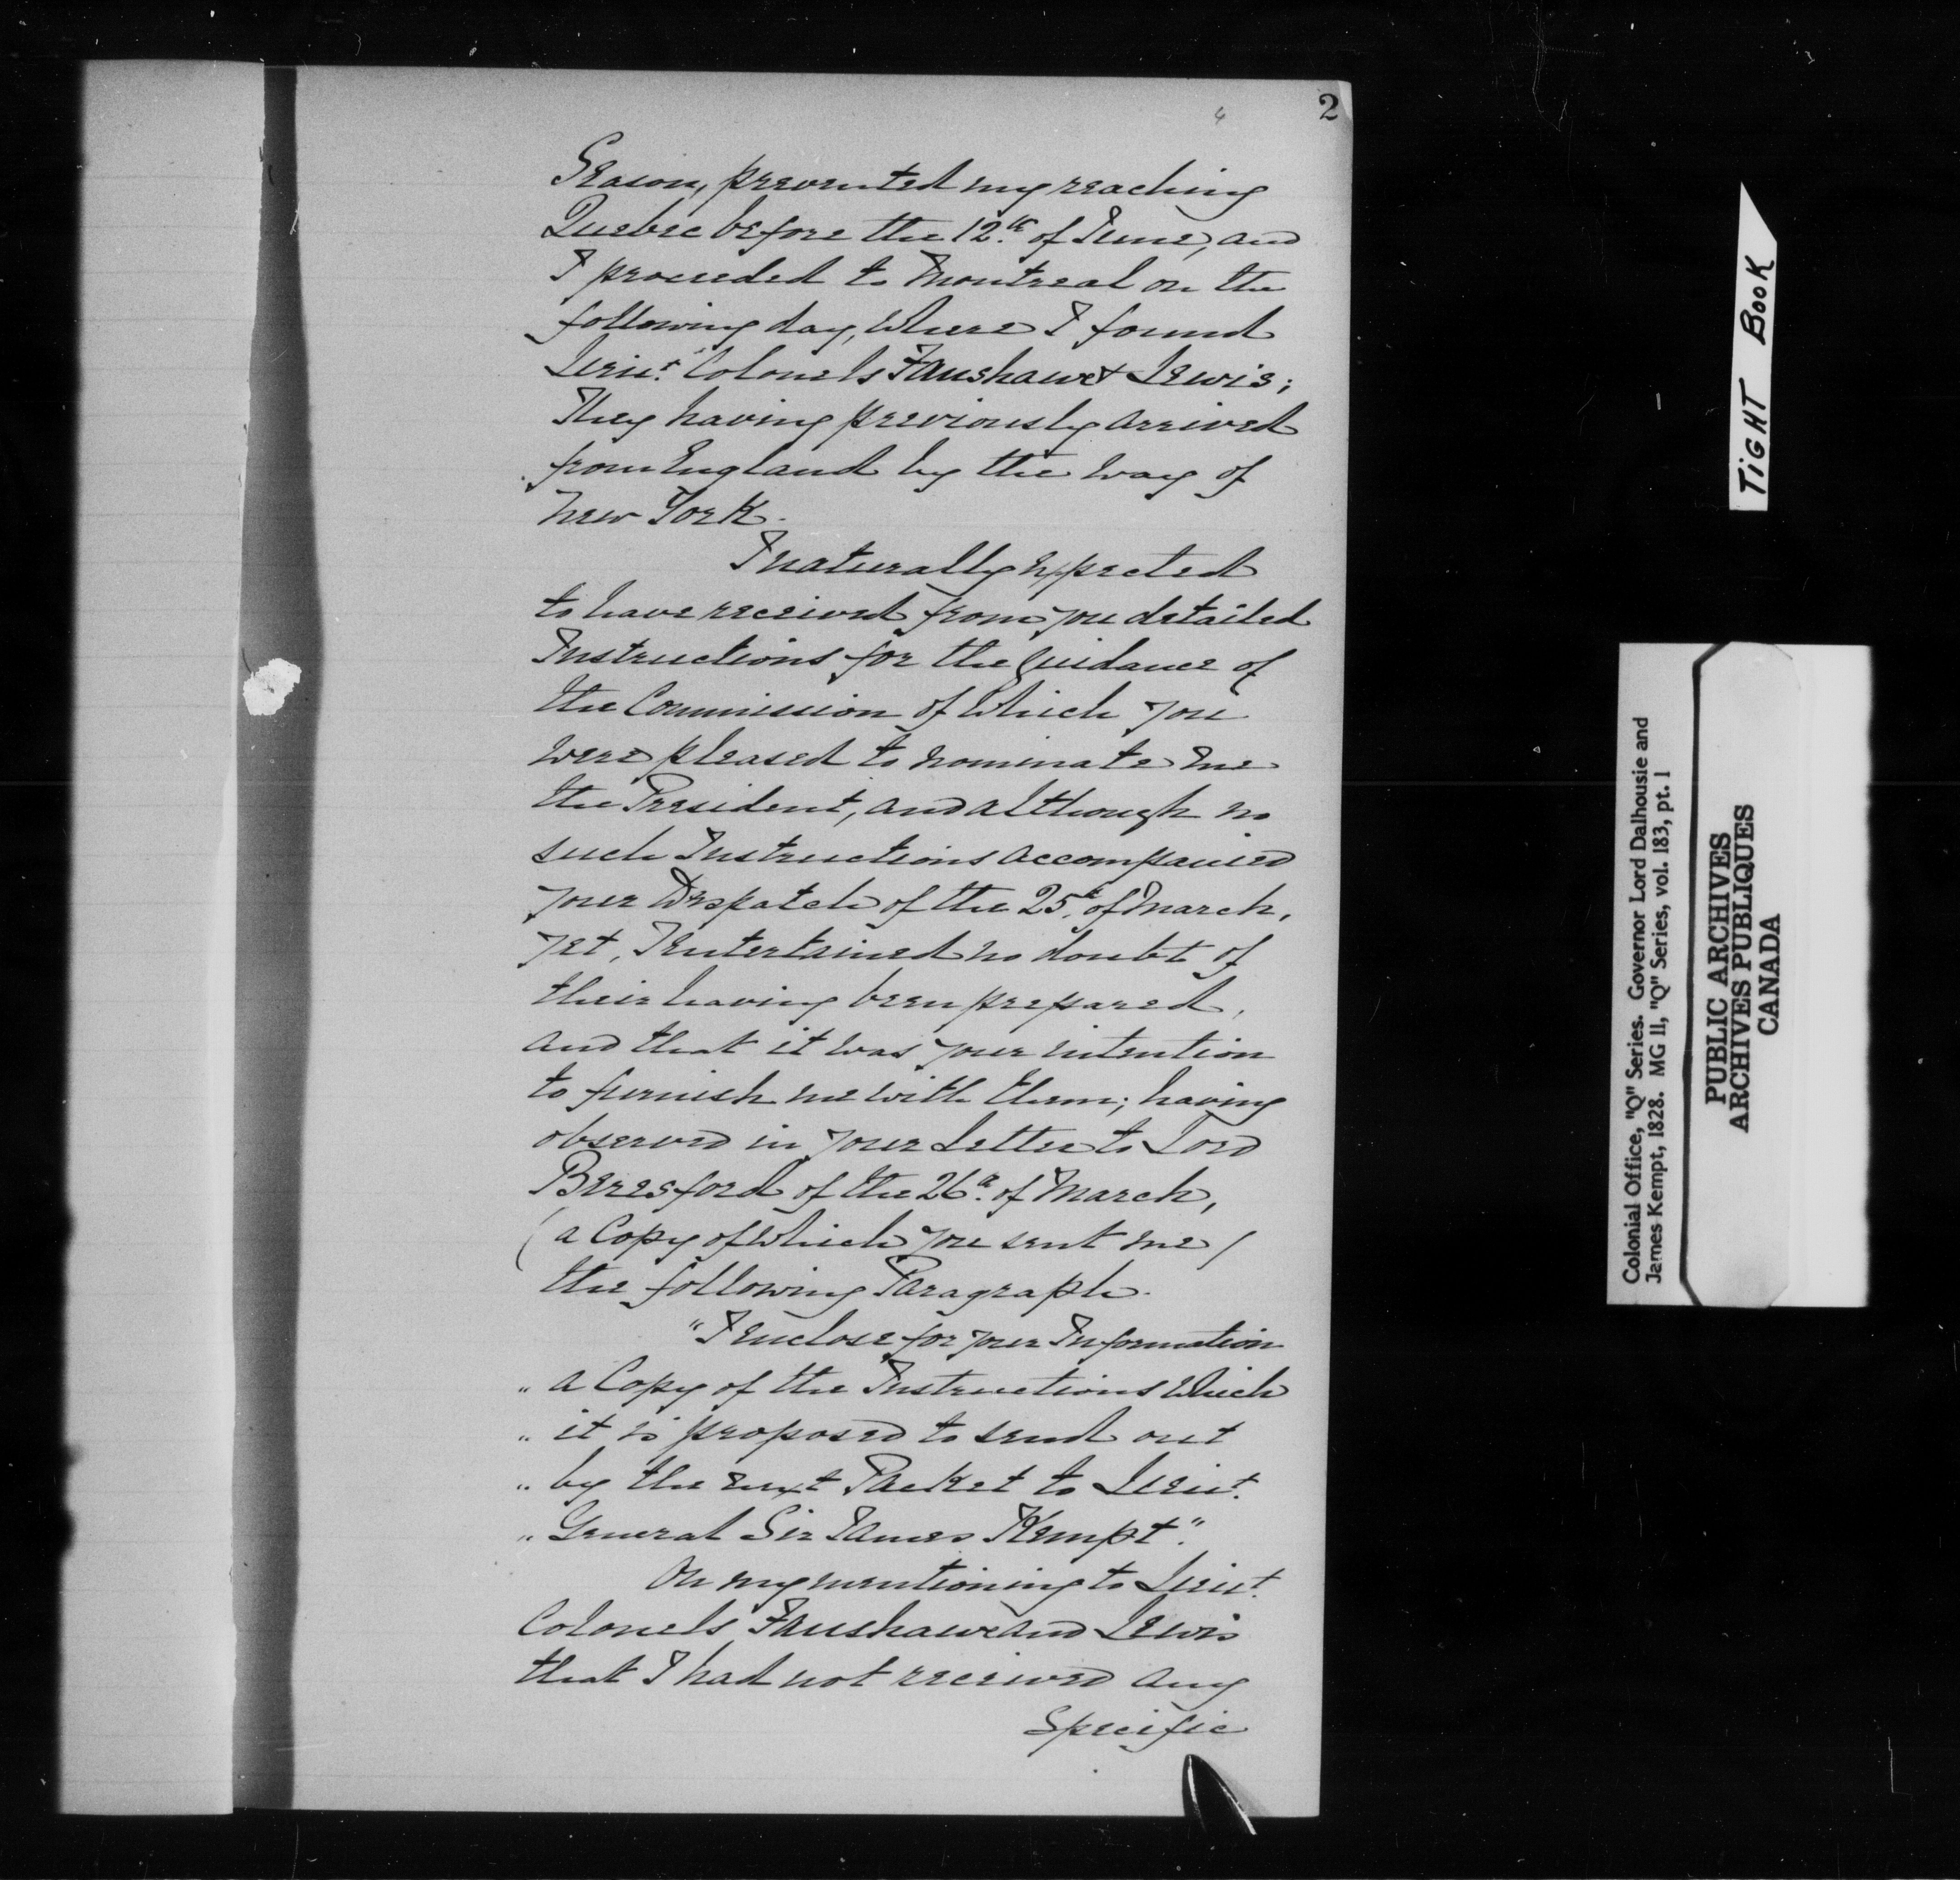 2
Season, prevented my reaching
Quebec before the 12.th of June, and
I proceeded to Montreal on the
following day, where I found
Lieut. Colonels Fanshawe & Lewis;
They having previously arrived
from England by the way of
New York.
I naturally expected
to have received from you detailed
Instructions for the guidance of
the Commission of which you
were pleased to nominate me
the President, and although no
such Instructions accompanied
your Despatch of the 25.th of March,
yet, I entertained no doubt of
their having been prepared,
and that it was your intention
to furnish me with them; having
observed in your Letter to Lord
Beresford of the 26.th of March,
(a Copy of which you sent me)
the following Paragraph.
"I enclose for your Information
" a Copy of the Instructions which
" it is proposed to send out
" by the next Packet to Lieut.
" General Sir James Kempt".
On my mentioning to Lieut.
Colonels Fanshawe and Lewis
that I had not received any
Specific
TIGHT BOOK
Colonial Office, "Q" Series. Governor Lord Dalhousie and
James Kempt, 1828. MG 11, "Q" Series, vol. 183, pt. 1
PUBLIC ARCHIVES
ARCHIVES PUBLIQUES
CANADA